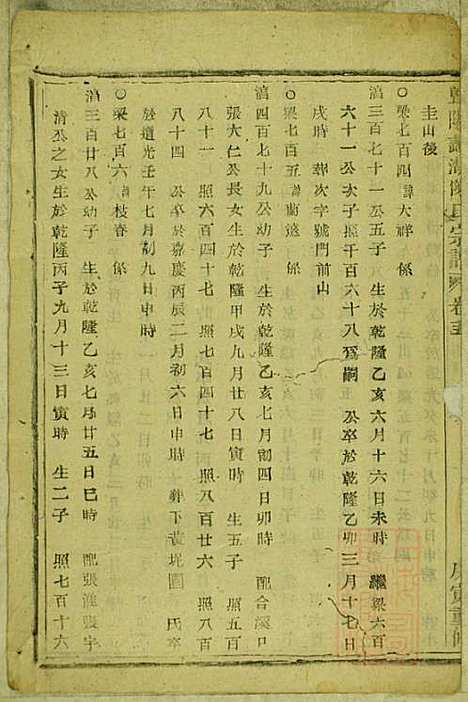 宗譜 卷
庚寅重修
圭山後
○梁七百四諱大祥 係
滴三百七十一公五子 生於乾隆乙亥六月十六日未時 繼梁六百
六十一公次子照千百六十八爲嗣 公卒於乾隆乙卯三月十七日
戌時 葬次字號門前山
○梁七百五諱蘭遠 係
滴四百七十九公幼子 生於乾隆乙亥七月初四日卯時 配合溪口
張大仁公長女生於乾隆甲戌九月廿八日寅時 生五子 照五百
八十一 照六百四十七 照七百四十七 照八百廿六 照八百
八十四 公卒於嘉慶丙辰二月初六日申時 葬下黄坭園 氏卒
於道光壬午七月初九日申時
○梁七百六諱枝春 係
滴三百廿八公幼子 生於乾隆乙亥七月廿五日巳時 配張淮張宇
清公之女生於乾隆丙子九月十三日寅時 生二子 照七百十六